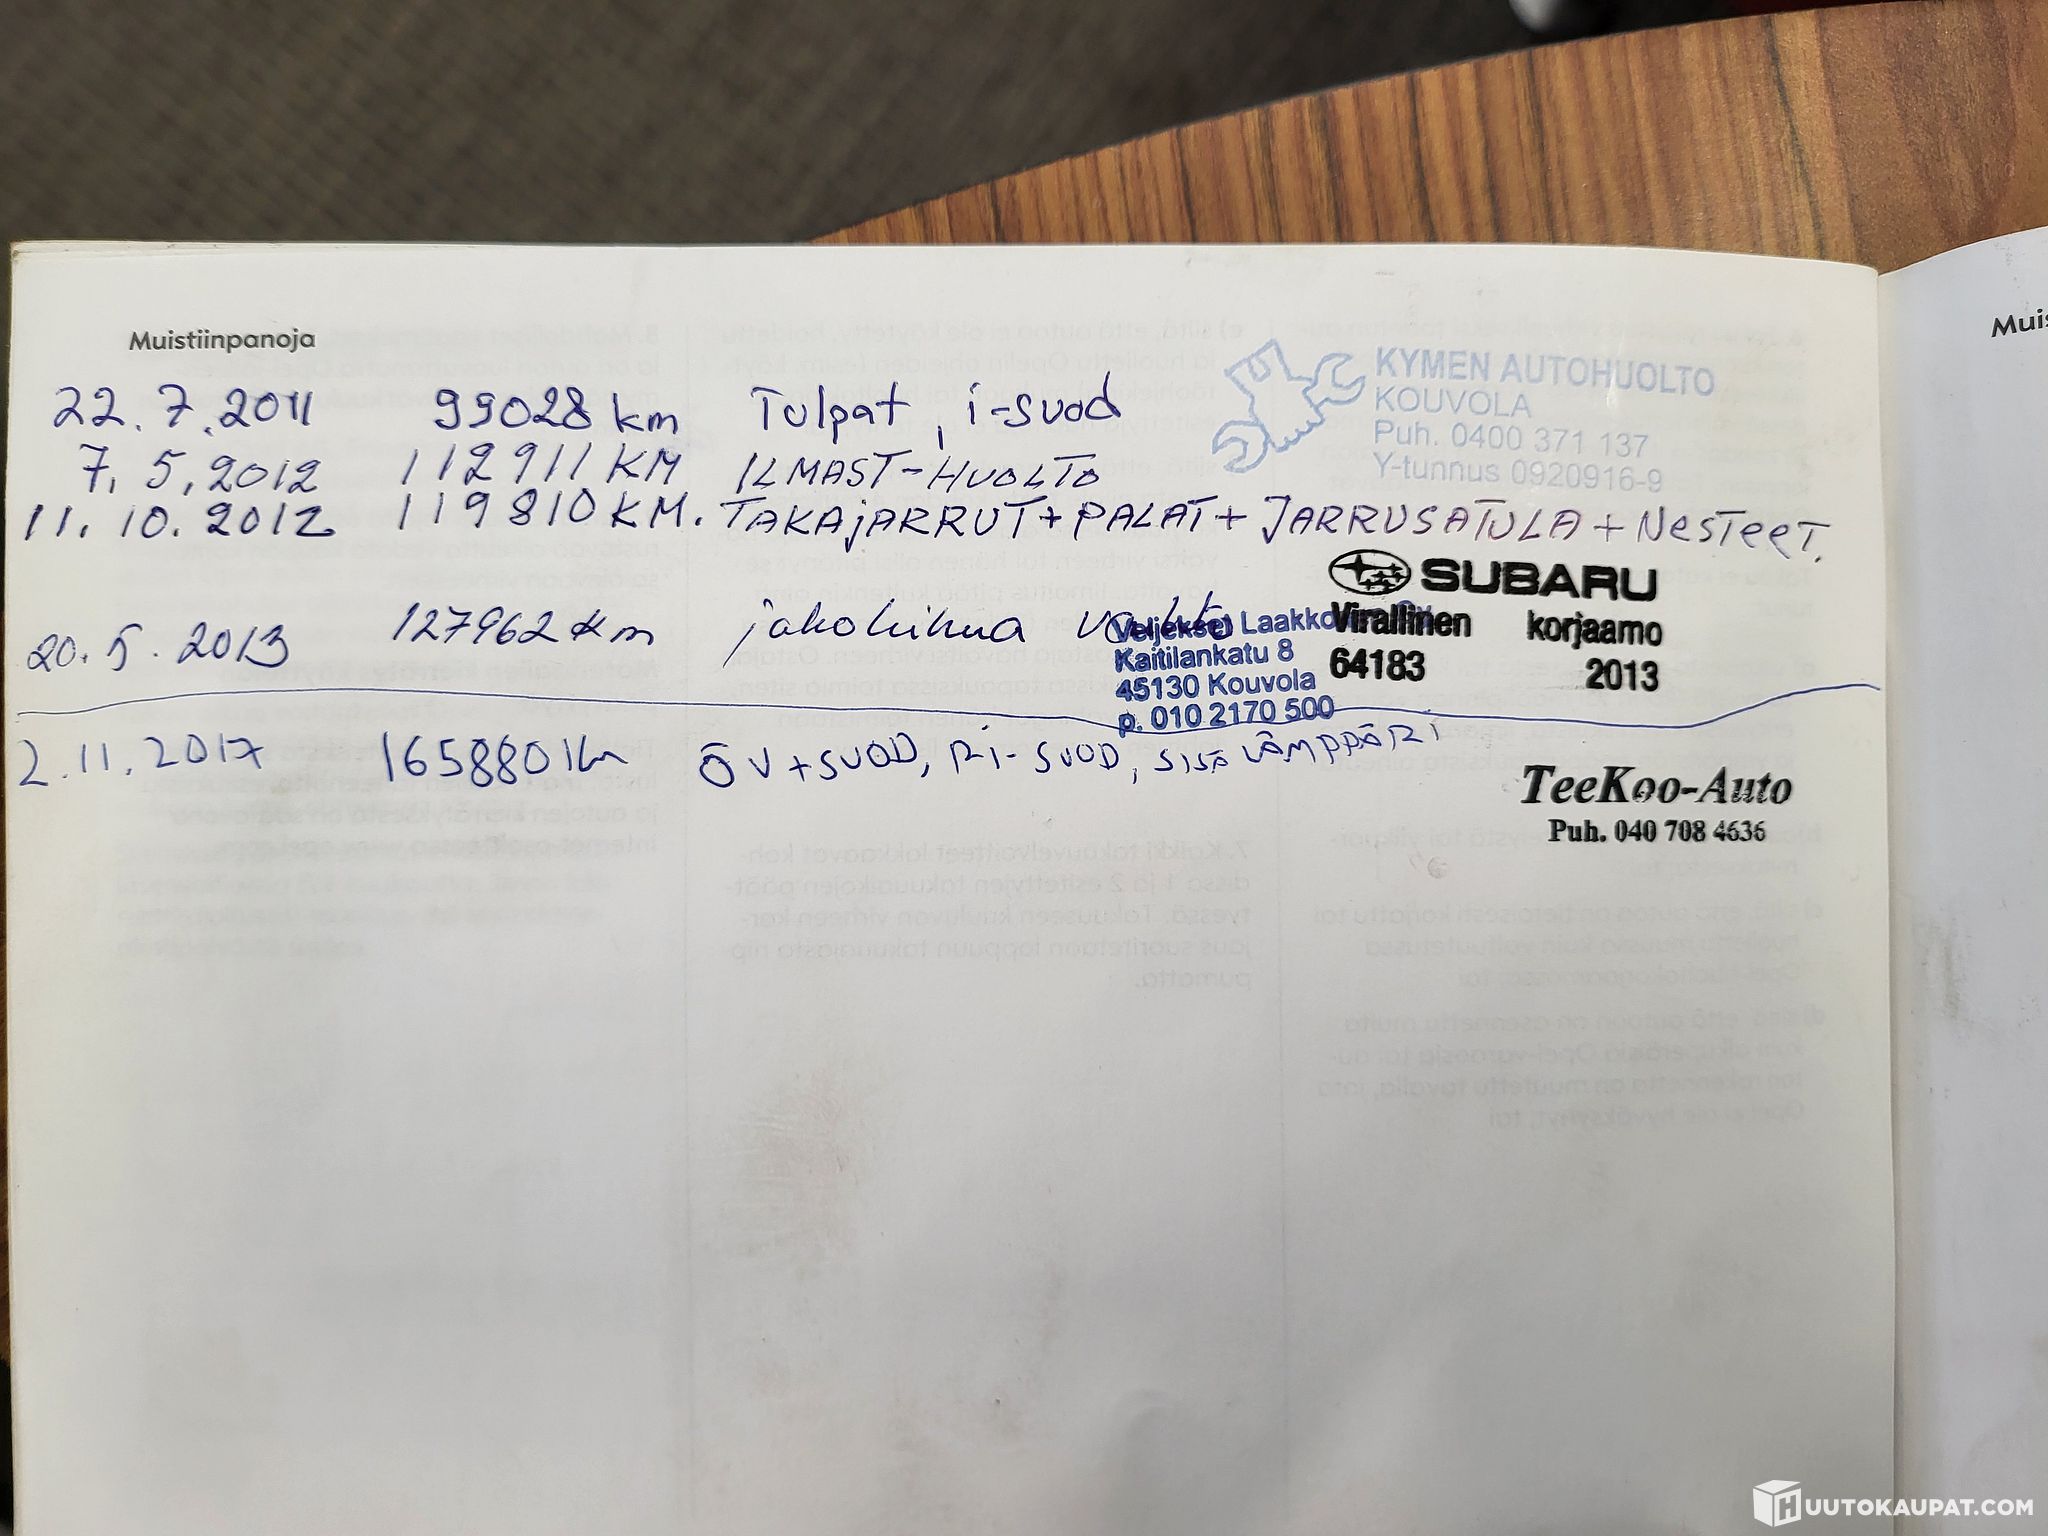 Muistiinpanoja
Muis
22.7.2011 99028 km Tulpat, i-suod
KYMEN AUTOHUOLTO
KOUVOLA
Puh. 0400 371 137
Y-tunnus 0920916-9
7.5.2012 112911 KM ILMAST-HUOLTO
11.10.2012 119810 KM. TAKAJARRUT + PALAT + JARRUSATULA + NESTEET.
20.5.2013 127962 km jakohihna vaihto
Veljekset Laakkonen Oy
Kaitilankatu 8
45130 Kouvola
p. 010 2170 500
SUBARU
Virallinen korjaamo
64183 2013
2.11.2017 165880 km ÖV+SUOD, RI-SUOD, SISÄLÄMPPÄRI
TeeKoo-Auto
Puh. 040 708 4636
HUUTOKAUPAT.COM